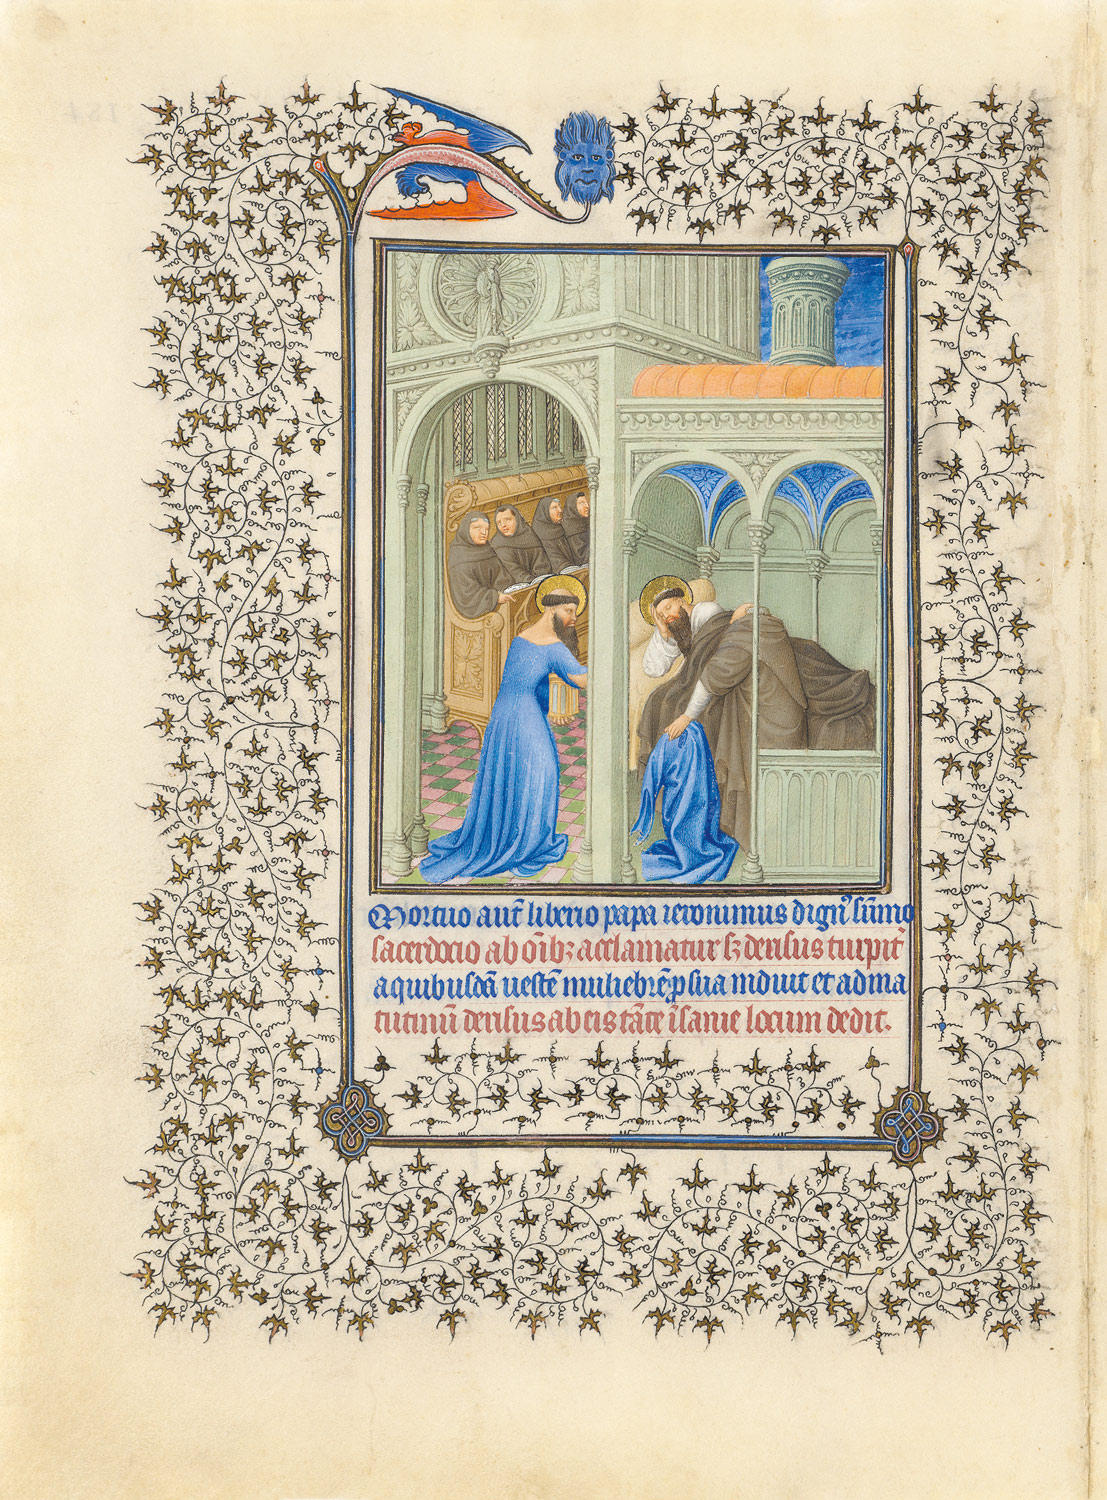 Mortuo aut̄ liberio papa ieronimus dign᷒ sūmo
sacerdocio ab oīb; acclamatur sꝫ derisus turpit᷑
a quibusdā uestē muliebrē ꝓ sua induit et ad ma
tutinū derisus ab eis tāte īsanie locum dedit.